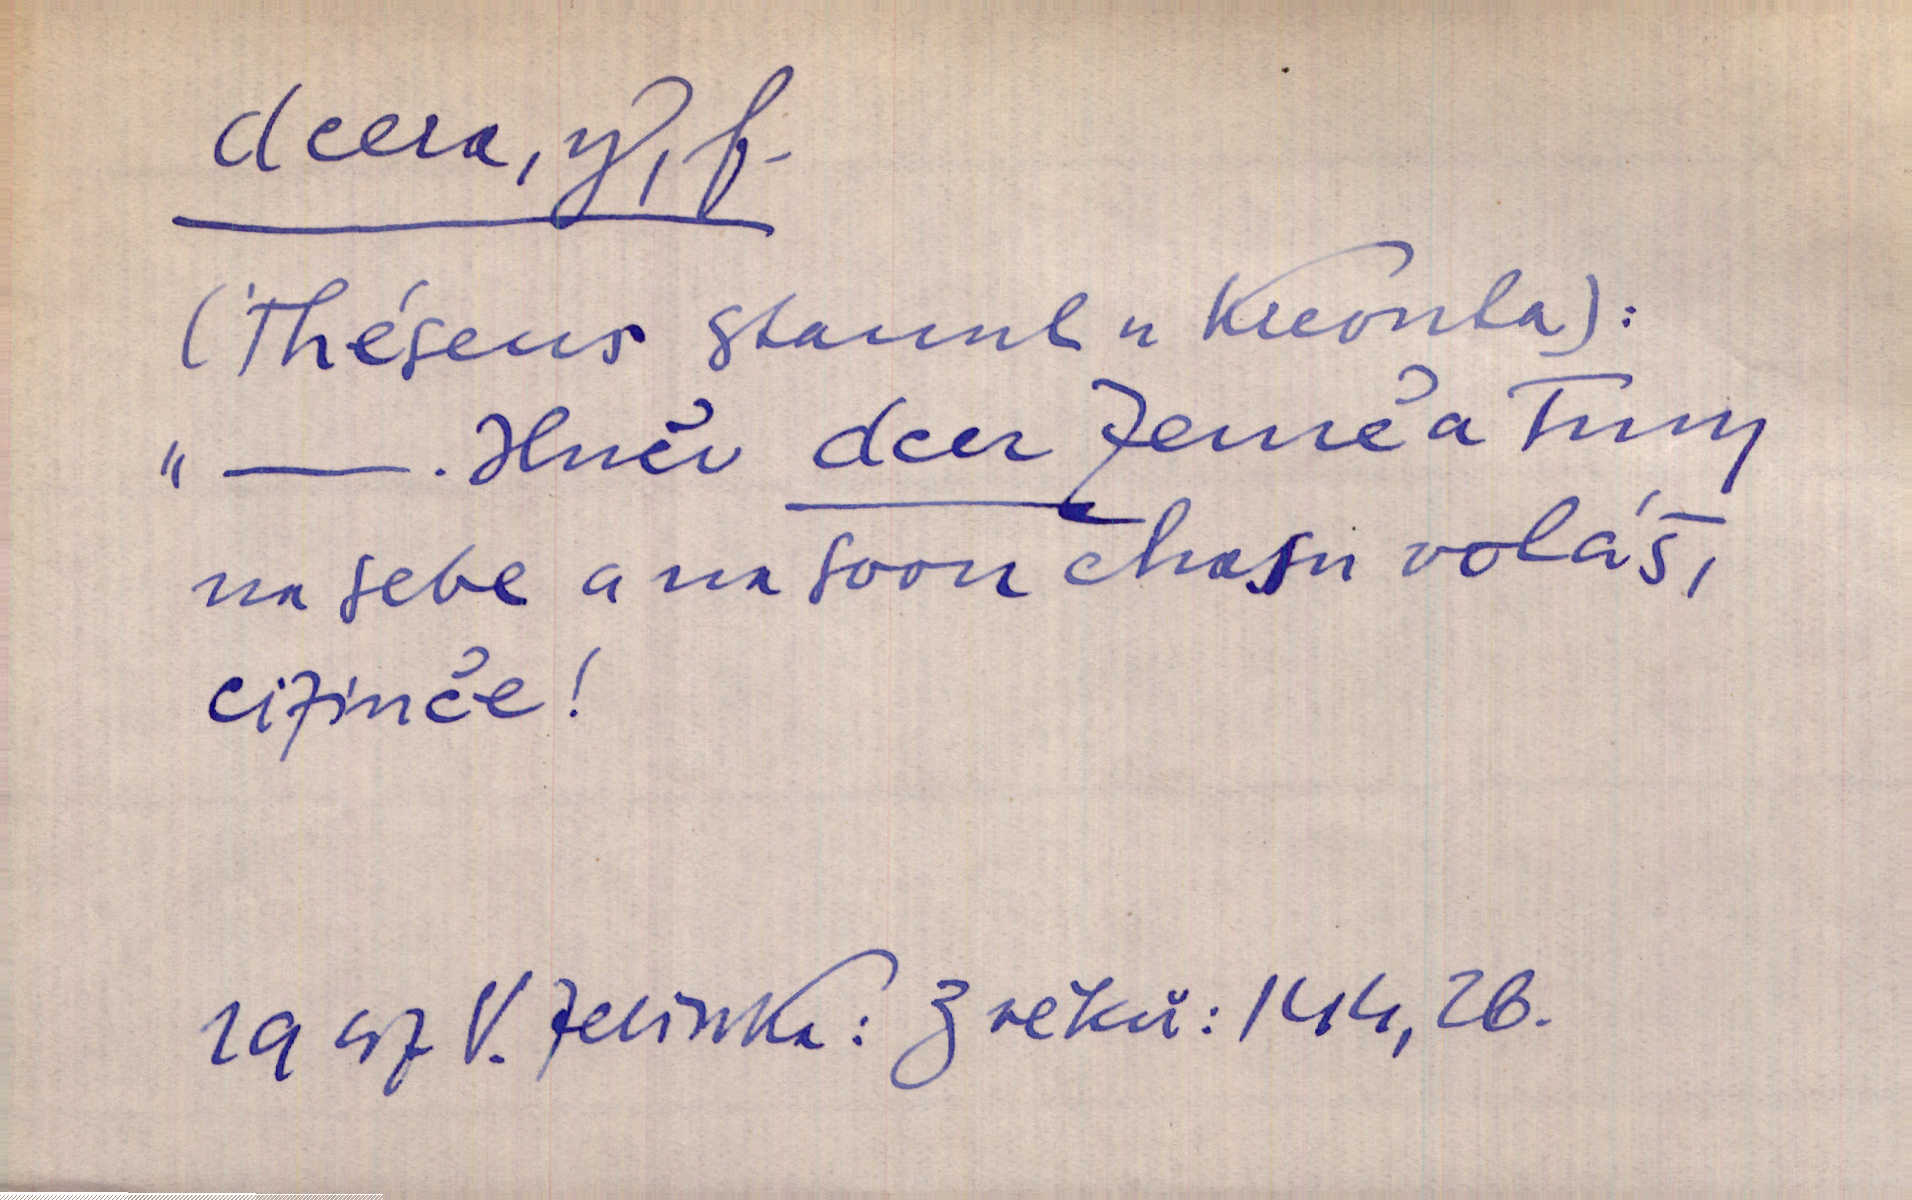 dcera, y, f.
(Théseus stanul u Kreonta):
" —— . Hněv dcer Země a Tmy
na sebe a na svou chasu voláš,
cizinče!
19 57 V. Jelínka: Z věků: 144, 26.